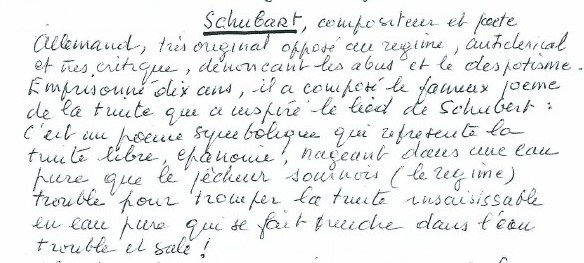 Schubart, compositeur et poete
Allemand, très original opposé au regime, anticlerical
et très critique, dénoncant les abus et le despotisme.
Emprisonné dix ans, il a composé le fameux poeme
de la truite que a inspiré le lied de Schubert :
C'est un poeme symbolique qui represente la
truite libre, epanouie, nageant dans une eau
pure que le pêcheur sournois (le regime)
trouble pour tromper la truite insaisissable
en eau pure qui se fait prendre dans l'eau
trouble et sale !